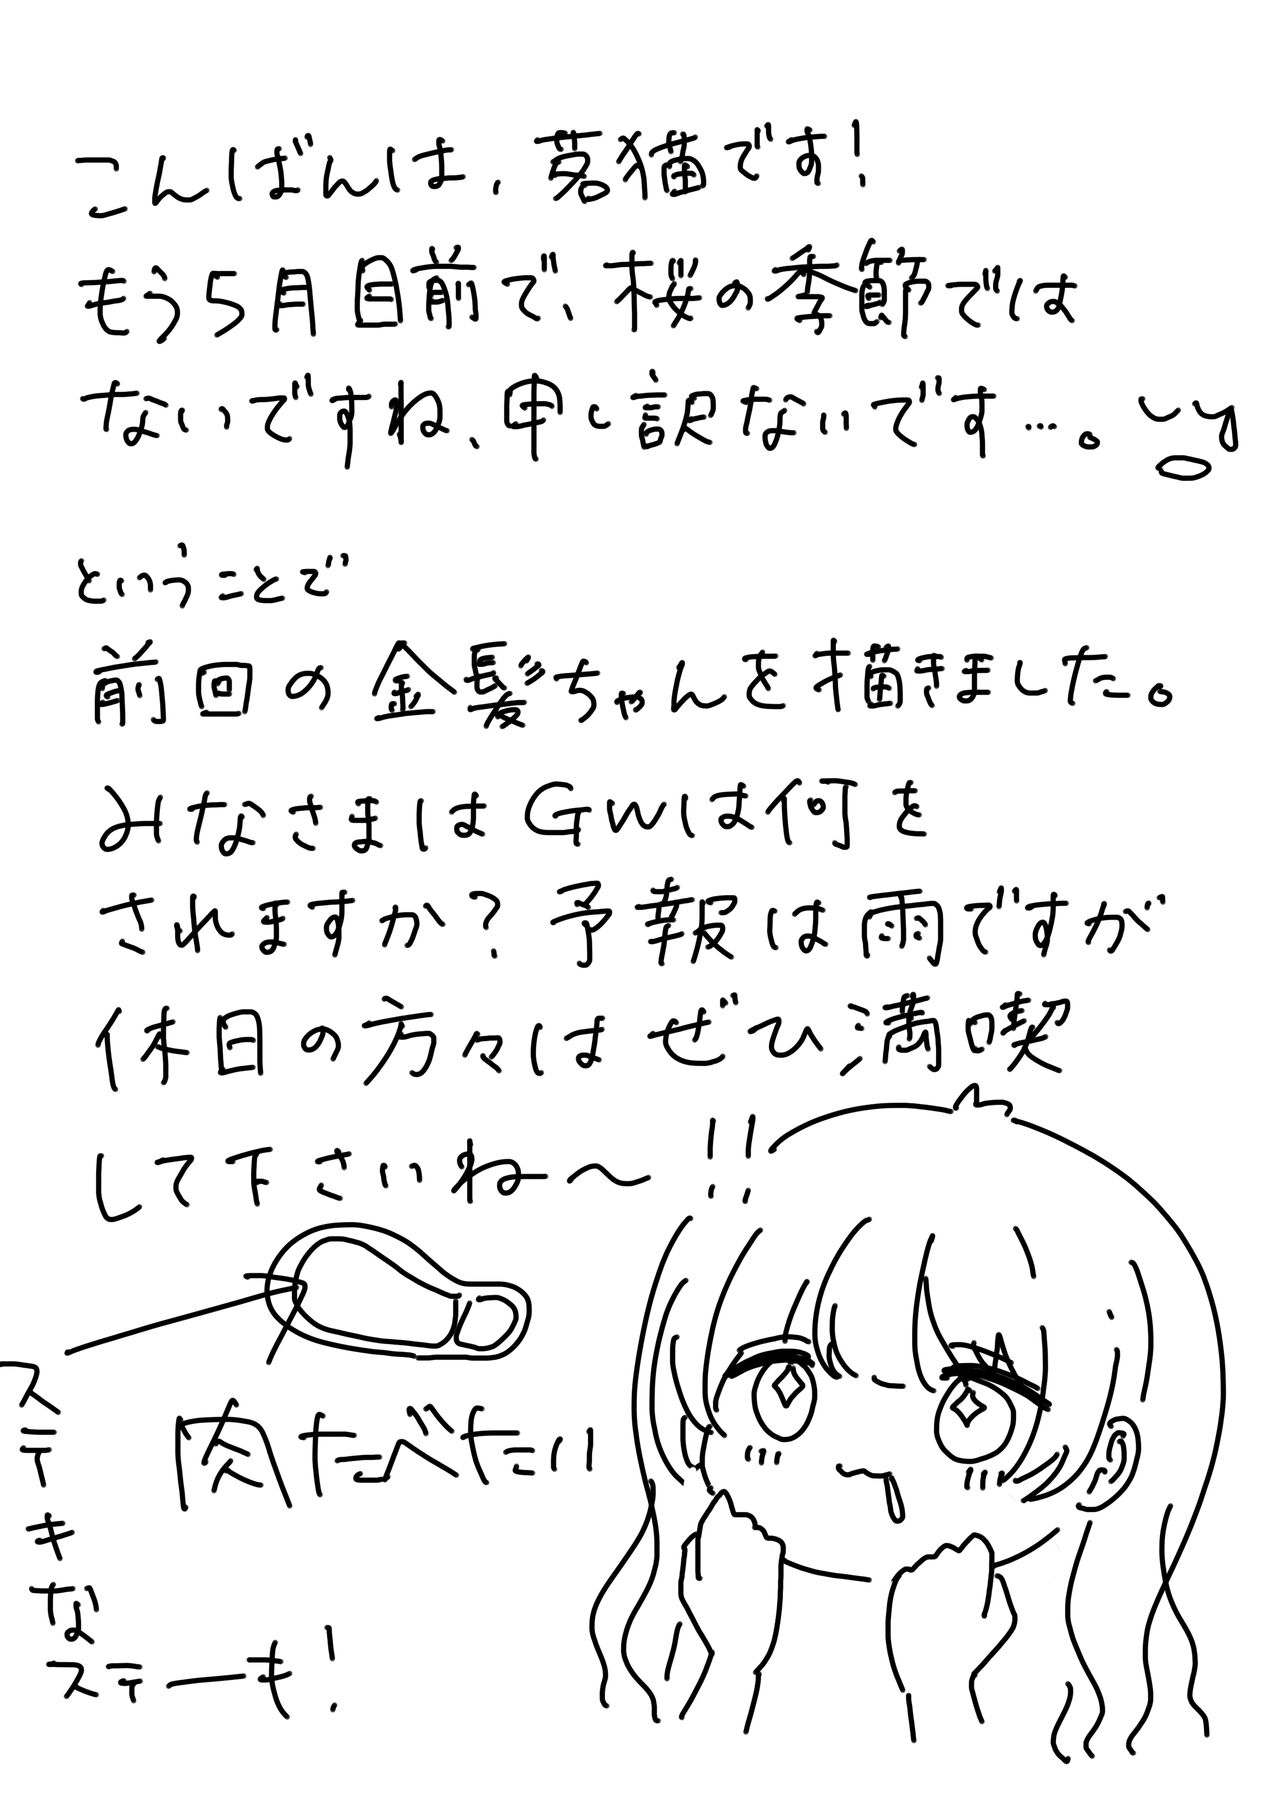 こんばんは、茗猫です!
もう5月目前で、桜の季節では
ないですね、申し訳ないです…。
ということで
前回の金髪ちゃんを描きました。
みなさまはGwは何を
されますか?予報は雨ですが
休日の方々はぜひ満喫
して下さいね〜!!
肉たべたい
ステキな
ステーキ!